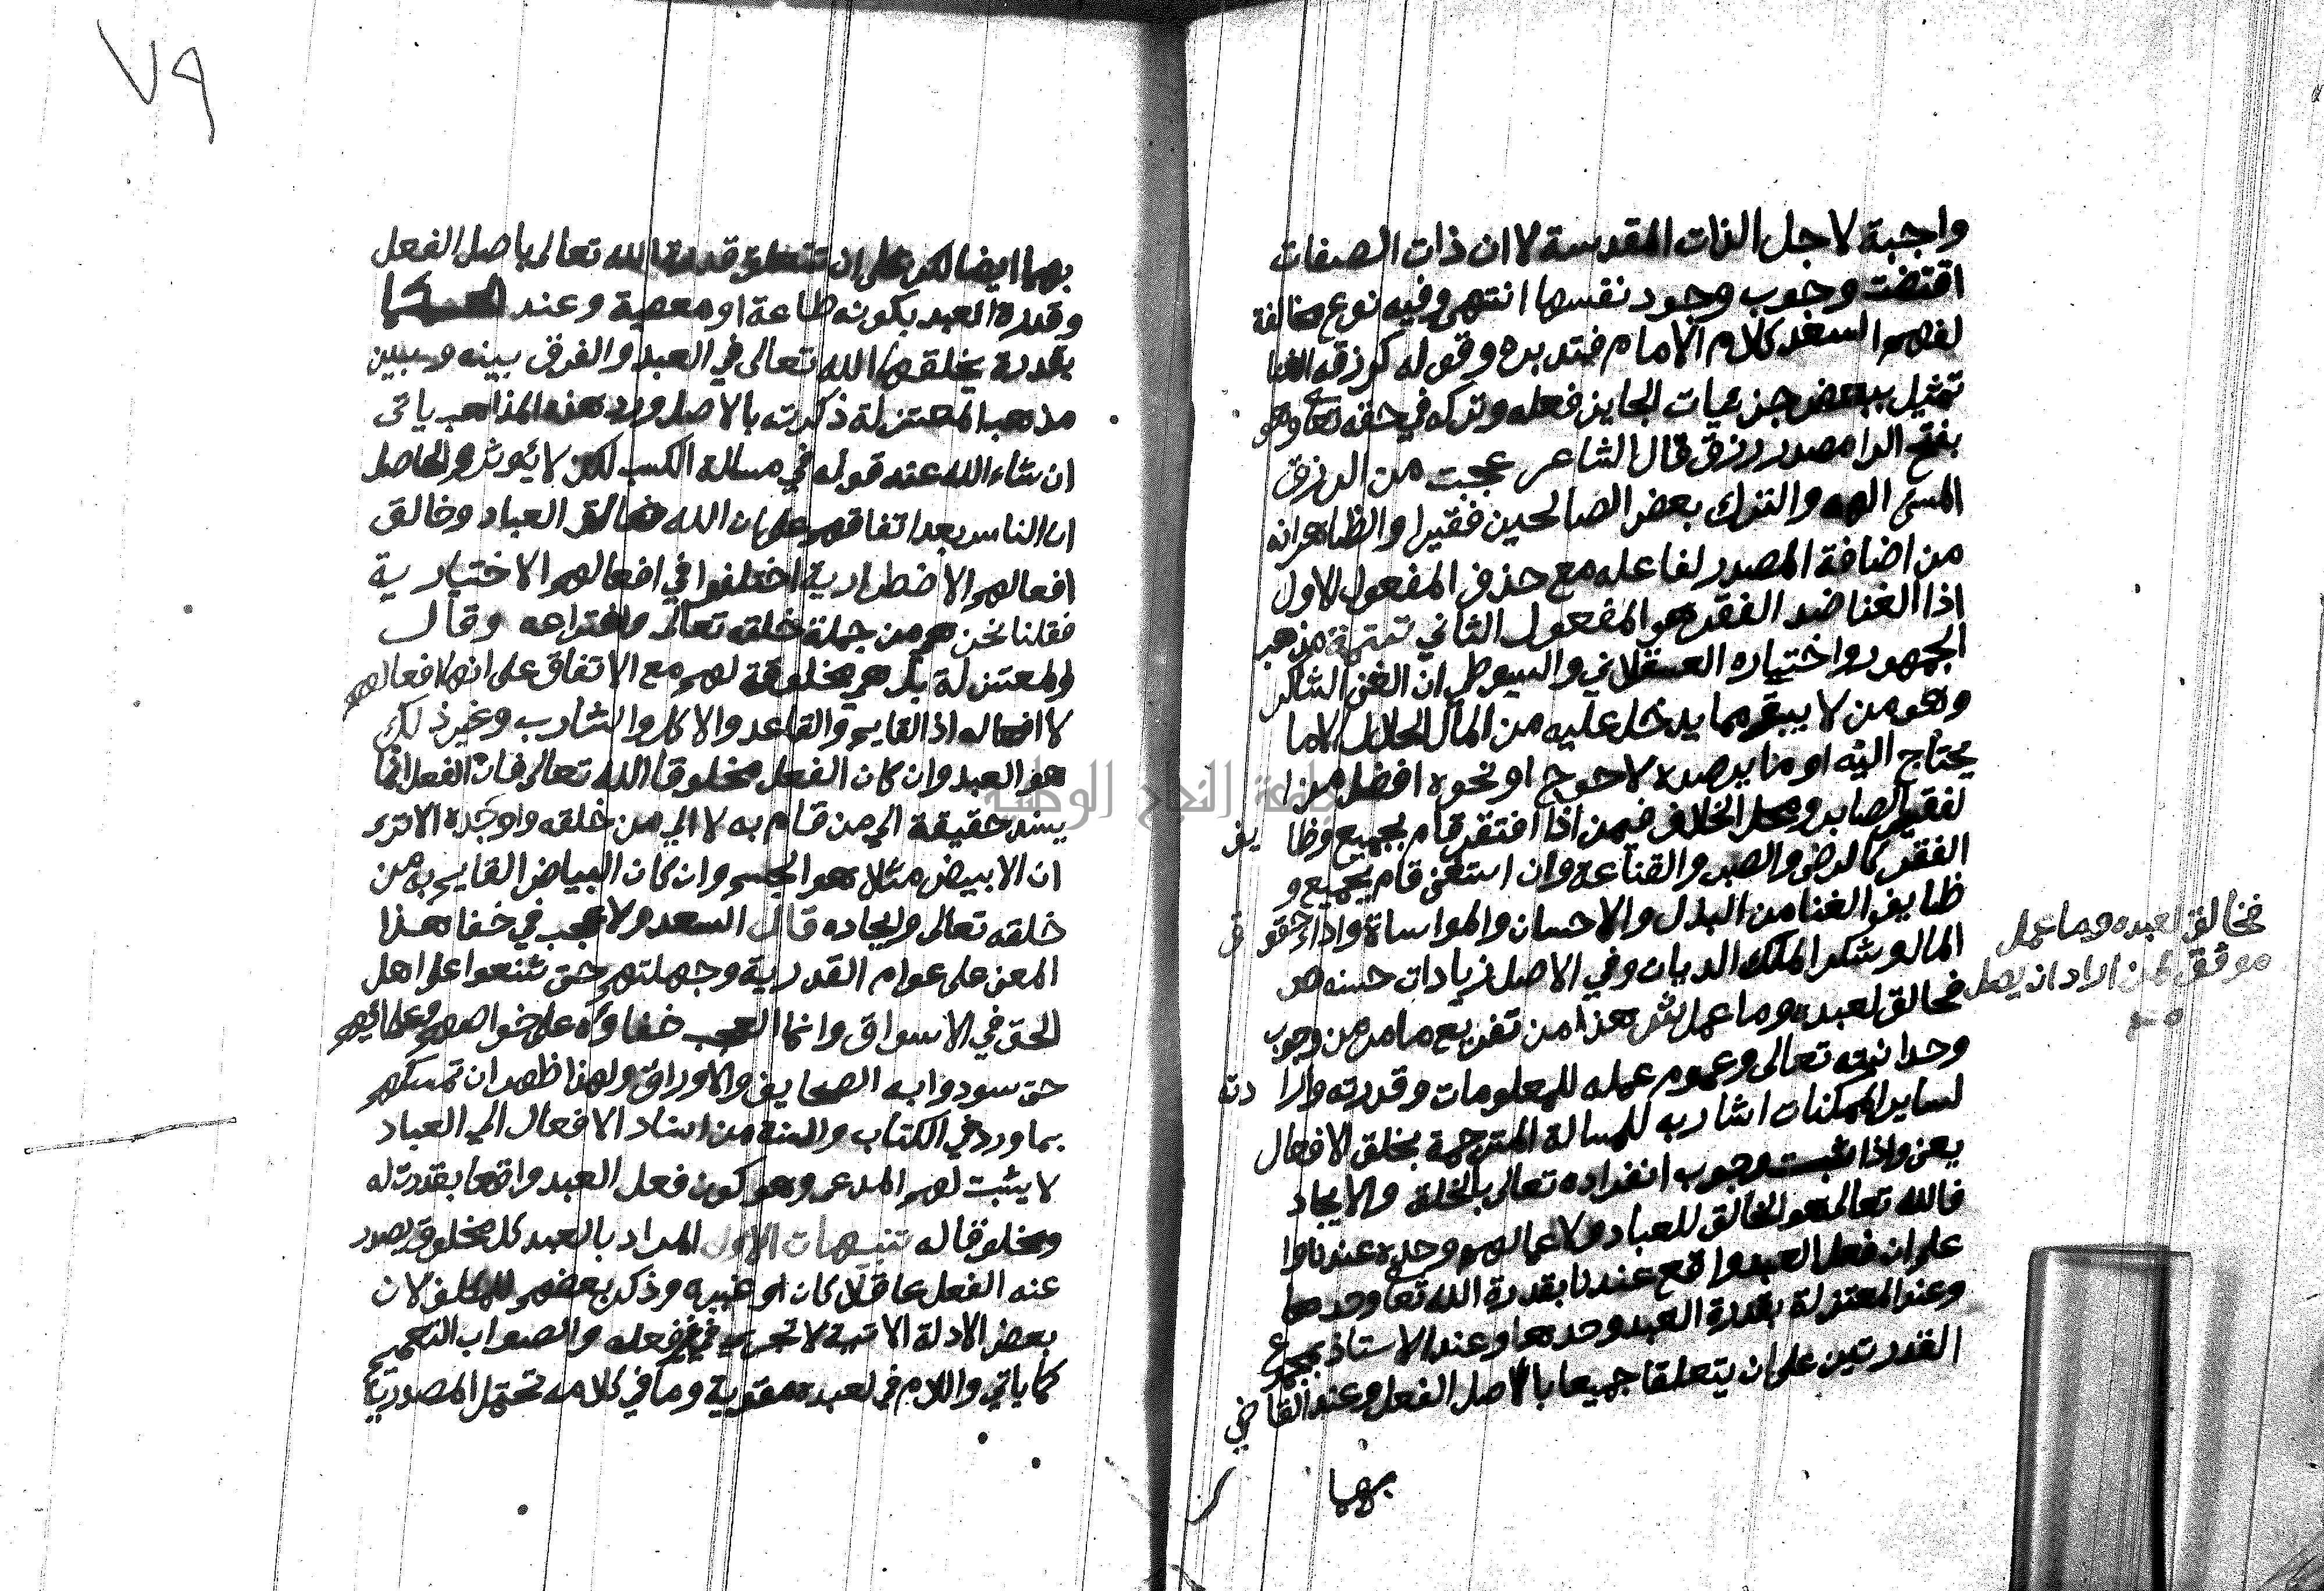 واجبة لاجل الذات المقدسة لا ان ذات الصفات
اقتضت وجوب وجود نفسها انتهى وفيه نوع مخالفة
لفهم السعد كلام الامام فتدبره وقوله كرزقه الغنا
تمثيل ببعض جزءيات الجايز فعله وتركه في حقه تعا وهو
بفتح الرا مصدر رزق قال الشاعر عجبت من الرزق
المسئ الهه والترك بعض الصالحين فقيرا والظاهر انه
من اضافة المصدر لفاعله مع حذف المفعول الاول
اذا الغنا ضد الفقر هو المفعول الثاني تتمة مذهب
الجمهور واختياره العسقلاني والسيوطي ان الغني الشاكر
وهو من لا يبقي مما يدخل عليه من المال الحلال الا ما
يحتاج اليه او ما يرصده لاحوج او نحوه افضل من ا
لفقير الصابر ومحل الخلاف فيمن اذا افتقر قام بجميع وظا يف
الفقر كالرضى والصبر والقناعة وان استغنى قام بجميع و
ظايف الغنا من البذل والاحسان والمواساة واداء حقو ق
المال وشكر الملك الديان وفي الاصل زيادات حسنه ص
فخالق لعبده وما عمل ش هذا من تفريع ما مر من وجوب
وحدانيته تعالى وعموم عمله للمعلومات وقدرته وارا دته
لساير الممكنات اشار به للمسالة المترجمة بخلق الافعال
يعني واذا ثبت وجوب انفراده تعالى بالخلق والايجاد
فالله تعالى هو الخالق للعباد ولاعمالهم وحده عندنا
على ان فعل العبد واقع عندنا بقدرة الله تعا وحدها
وعند المعتزلة بقدرة العبد وحدها وعند الاستاذ بمجموع
القدرتين على ان يتعلقا جميعا بالاصل الفعل وعند القاضي
بهما
فخالق لعبده وما عمل
موفق لمن اراد ان يصل
صح
٧٩
بهما ايضا لكن على ان تتعلق قدرة الله تعالى باصل الفعل
وقدرة العبد بكونه طاعة او معصية وعند الحكما
بقدرة يخلقها الله تعالى في العبد والفرق بينه وبين
مذهب المعتزلة ذكرته بالاصل ورد هذه المذاهب ياتى
ان شاء الله عند قوله في مسالة الكسب لكن لا يؤثر والحاصل
ان الناس بعد اتفاقهم على ان الله خالق العباد وخالق
افعالهم الاضطرارية اختلفوا في افعالهم الاختيارية
فقلنا نحن هو من جملة خلقه تعالى واختراعه وقال
المعتزلة بل هي مخلوقة لهم مع الاتفاق على انها افعالهم
لا افعاله اذ القايم والقاعد والاكل والشارب وغير ذلك
هو العبد وان كان الفعل مخلوقا لله تعالى فان الفعل انما
يسند حقيقة الى من قام به لا الى من خلقه واوجده الا ترى
ان الابيض مثلا هو الجسم وان كان البياض القايم به من
خلقه تعالى وايجاده قال السعد ولا عجب في خفا هذا
المعنى على عوام القدرية وجهلتهم حتى شنعوا على اهل
الحق في الاسواق وانما العجب خفاؤه على خواصهم وعلمائهم
حتى سودوا به الصحايف والاوراق ولهذا ظهر ان تمسكهم
بما ورد في الكتاب والسنة من اسناد الافعال الى العباد
لا يثبت لهم المدعى وهو كون فعل العبد واقعا بقدرته
ومخلوقا له تنبيهات الاول المراد بالعبد كل مخلوق يصدر
عنه الفعل عاقلا كان او غيره وذكر بعضهم المكلف لان
بعض الادلة الاتية لا تجري في غير فعله والصواب التعميم
كما ياتي واللام في لعبده مقوية وما في كلامه تحتمل المصدرية